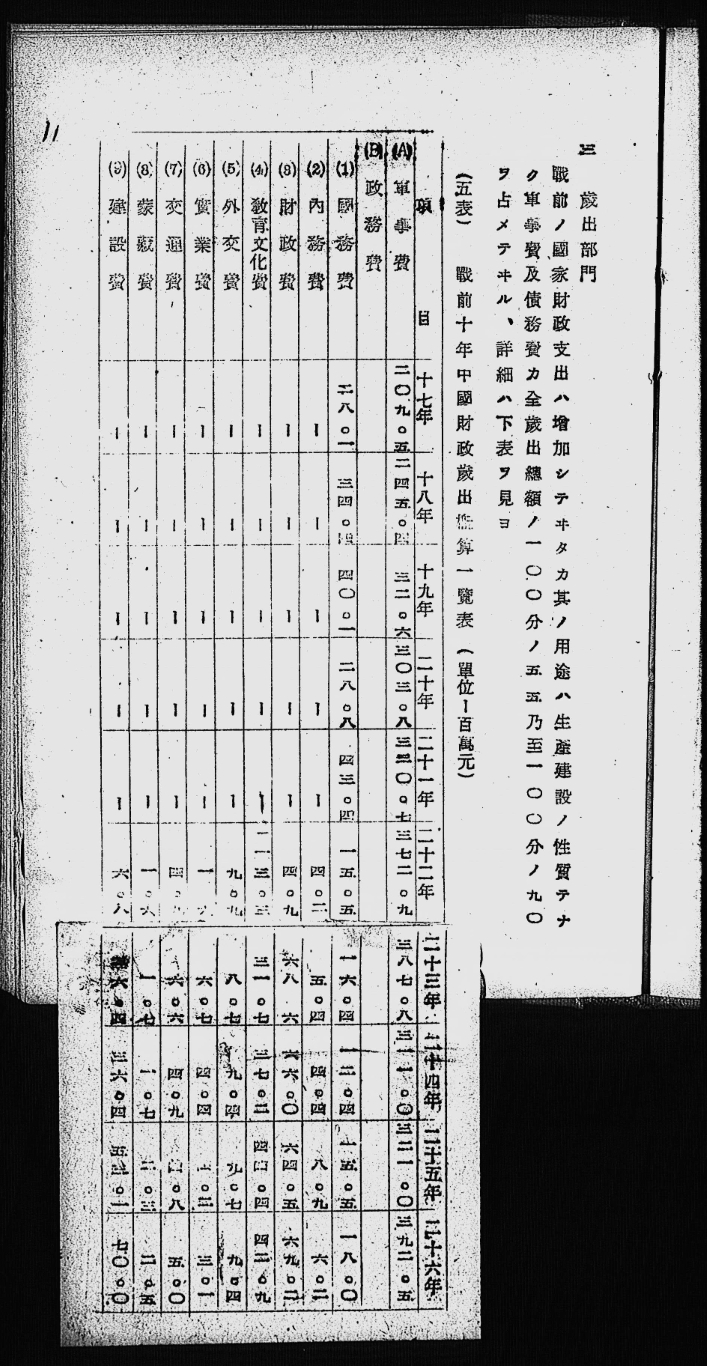 三 歲出部門
戰前ノ國家財政支出ハ增加シテヰタカ其ノ用途ハ生產建設ノ性質テナ
ク軍事費及債務費カ全歲出總額ノ一〇〇分ノ五五乃至一〇〇分ノ九〇
ヲ占メテヰル、詳細ハ下表ヲ見ヨ
(五表) 戰前十年中國財政歲出概算一覽表 (單位ー百萬元)
項目 十七年 十八年 十九年 二十年 二十一年 二十二年 二十三年 二十四年 二十五年 二十六年
(A) 軍事費 二〇九。五 二四五。四 三一一。六 三〇三。八 三二〇。七 三七二。九 三八七。八 三二一。〇 三二一。〇 三九二。五
(B) 政務費
(1) 國務費 二八。一 三四。四 四〇。一 二八。八 四三。四 一五。五 一六。四 一二。四 一五。五 一八。〇
(2) 內務費 ー ー ー ー ー 四。二 五。四 四。四 八。九 六。二
(3) 財政費 ー ー ー ー ー 四。九 六八。六 六六。〇 六四。五 六九。二
(4) 敎育文化費 ー ー ー ー ー 三。三 三一。七 三七。二 四四。四 四二。九
(5) 外交費 ー ー ー ー ー 九。九 八。七 九。四 九。七 九。四
(6) 實業費 ー ー ー ー ー 六。七 四。四 三。一
(7) 交通費 ー ー ー ー ー 六。六 四。九 五。〇
(8) 蒙藏費 ー ー ー ー ー 一。七 一。七 二。三 二。五
(9) 建設費 ー ー ー ー ー 六。八 三六。四 七〇。〇
11